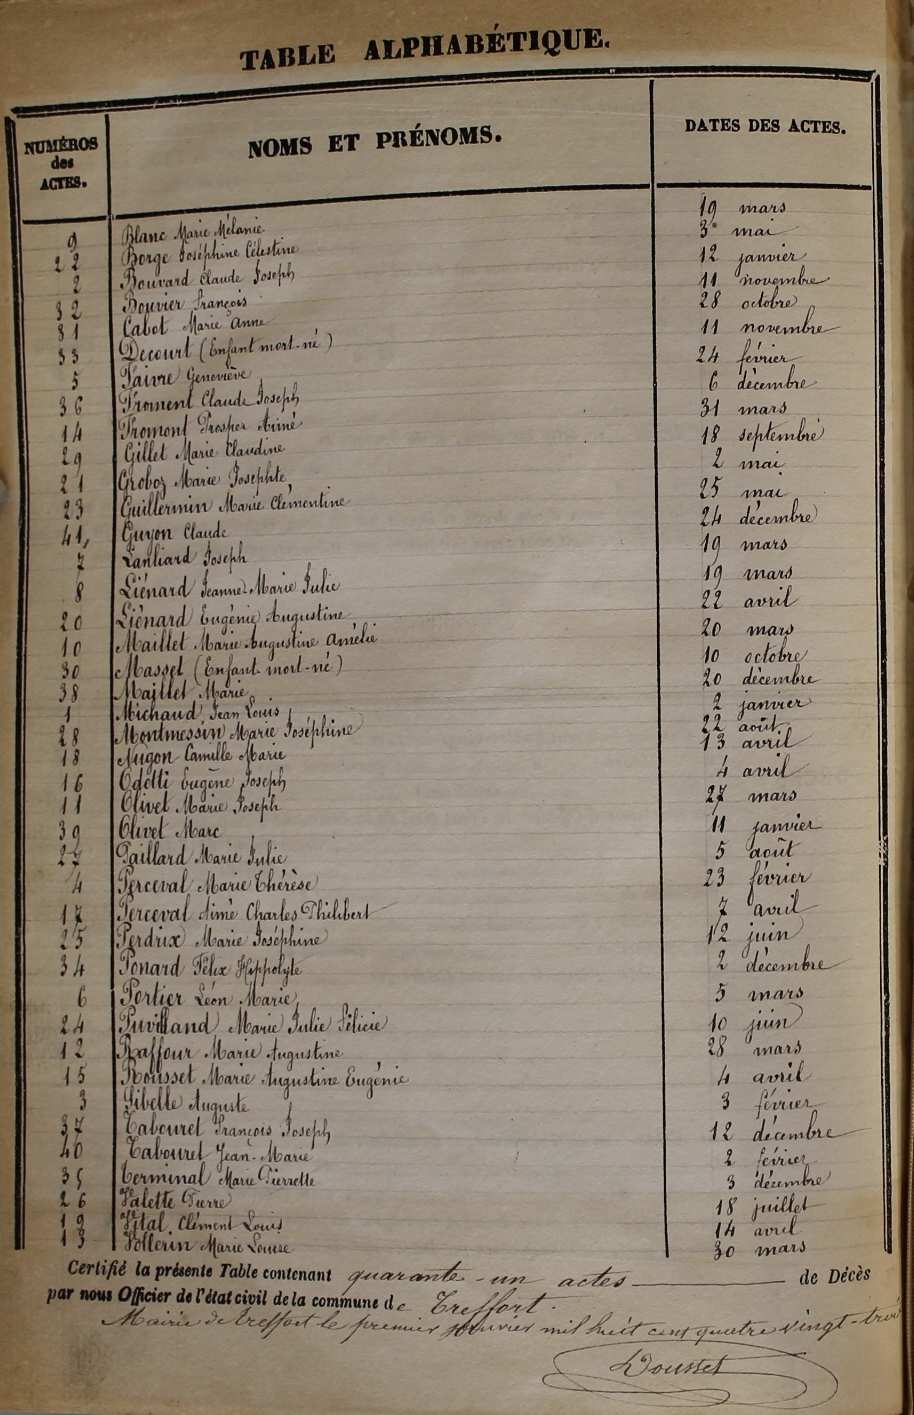 TABLE ALPHABÉTIQUE.
NUMÉROS des ACTES. NOMS ET PRÉNOMS. DATES DES ACTES.
9 Blanc Marie Mélanie 19 mars
22 Borge Joséphine Célestine 3 mai
2 Bouvard Claude Joseph 12 janvier
32 Bouvier François 11 novembre
31 Cabot Marie Anne 28 octobre
33 Decourt (Enfant mort-né) 11 novembre
5 Faivre Geneviève 24 février
36 Froment Claude Joseph 6 décembre
14 Fromont Prosper Aimé 31 mars
29 Gillet Marie Claudine 18 septembre
21 Groboz Marie Josephte 2 mai
23 Guillermin Marie Clémentine 25 mai
41 Guyon Claude 24 décembre
7 Lanliard Joseph 19 mars
8 Liénard Jeanne-Marie Julie 19 mars
20 Liénard Eugénie Augustine 22 avril
10 Maillet Marie Augustine Amélie 20 mars
30 Masset (Enfant mort-né) 10 octobre
38 Maillet Marie 20 décembre
1 Michaud Jean Louis 2 janvier
28 Montmessin Marie Joséphine 22 août
18 Nugon Camille Marie 13 avril
16 Odetti Eugène Joseph 4 avril
11 Olivet Marie Joseph 27 mars
39 Olivet Marc 11 janvier
27 Paillard Marie Julie 5 août
4 Perceval Marie Thérèse 23 février
17 Perceval Aimé Charles Philibert 7 avril
25 Perdrix Marie Joséphine 12 juin
34 Ponard Félix Hippolyte 2 décembre
6 Portier Léon Marie 5 mars
24 Puvilland Marie Julie Félicie 10 juin
12 Raffour Marie Augustine 28 mars
15 Rousset Marie Augustine Eugénie 4 avril
3 Sibelle Auguste 3 février
37 Tabouret François Joseph 12 décembre
40 Tabouret Jean-Marie 2 février
35 Terminal Marie Pierrette 3 décembre
26 Valette Pierre 18 juillet
19 Vital Clément Louis 14 avril
13 Vollerin Marie Louise 30 mars
Certifié la présente Table contenant quarante-un actes de Décès
par nous Officier de l'état civil de la commune de Treffort.
Mairie de Treffort le premier janvier mil huit cent quatre vingt-trois